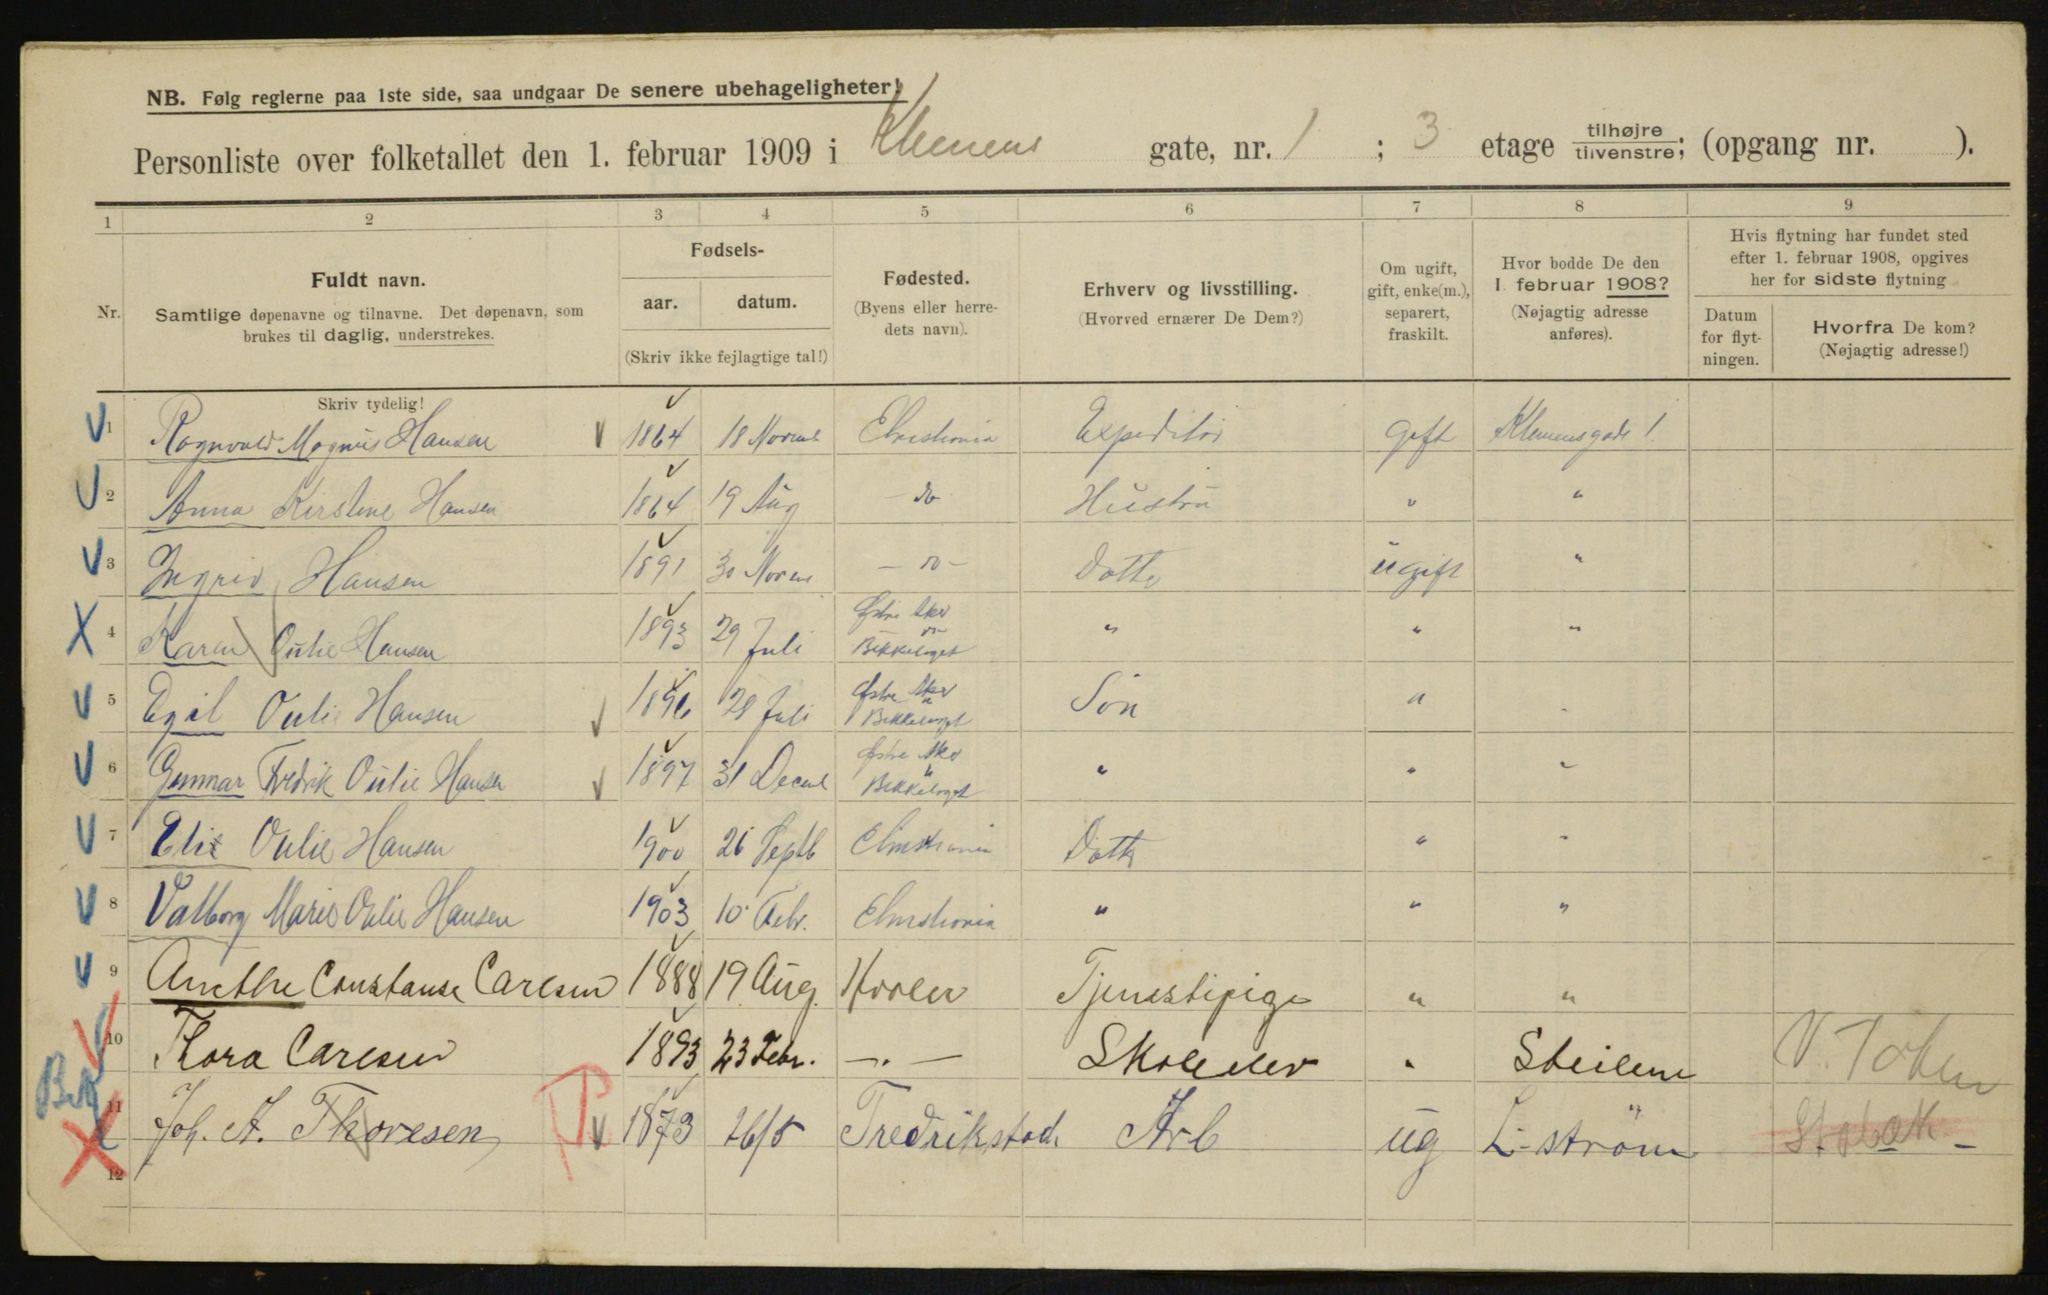 NB. Følg reglerne paa 1ste side, saa undgaar De senere ubehageligheter!
Personliste over folketallet den 1. februar 1909 i Klemens gate, nr. 1 ; 3 etage tilhøjre tilvenstre; (opgang nr. ).
1 2 3 4 5 6 7 8 9
Nr.
Fuldt navn.
Samtlige døpenavne og tilnavne. Det døpenavn, som
brukes til daglig, understrekes.
Fødsels-
aar. datum.
(Skriv ikke fejlagtige tal!)
Fødested.
(Byens eller herre-
dets navn).
Erhverv og livsstilling.
(Hvorved ernærer De Dem?)
Om ugift,
gift, enke(m.),
separert,
fraskilt.
Hvor bodde De den
1. februar 1908?
(Nøjagtig adresse
anføres).
Hvis flytning har fundet sted
efter 1. februar 1908, opgives
her for sidste flytning
Datum
for flyt-
ningen.
Hvorfra De kom?
(Nøjagtig adresse!)
Skriv tydelig!
1 Ragnvald Magnus Hansen 1864 18 Novemb Christiania Expeditør gift Klemensgade 1.
2 Anna Kirstine Hansen 1864 19 Aug - do Hustru " "
3 Ingrid Hansen 1891 30 Novem - do - Datter ugift "
4 Karen Oulie Hansen 1893 29 Juli Østre Aker Bekkelaget " " "
5 Egil Oulie Hansen 1896 28 Juli Østre Aker Bekkelaget Søn " "
6 Gunnar Fredrik Oulie Hansen 1897 31 Decemb Østre Aker Bekkelaget " " "
7 Elie Oulie Hansen 1900 26 Septb Christiania Datter " "
8 Valborg Marie Oulie Hansen 1903 10 Febr. Christiania " " "
9 Anethe Constanse Carlsen 1888 19 Aug. Hvaler Tjenestepige " "
10 Thora Carlsen 1893 23 Febr. — " — Skoleelev " Steilene
11 Joh. A. Thoresen 1873 26/5 Fredrikstad Arb ug L-strøm
12